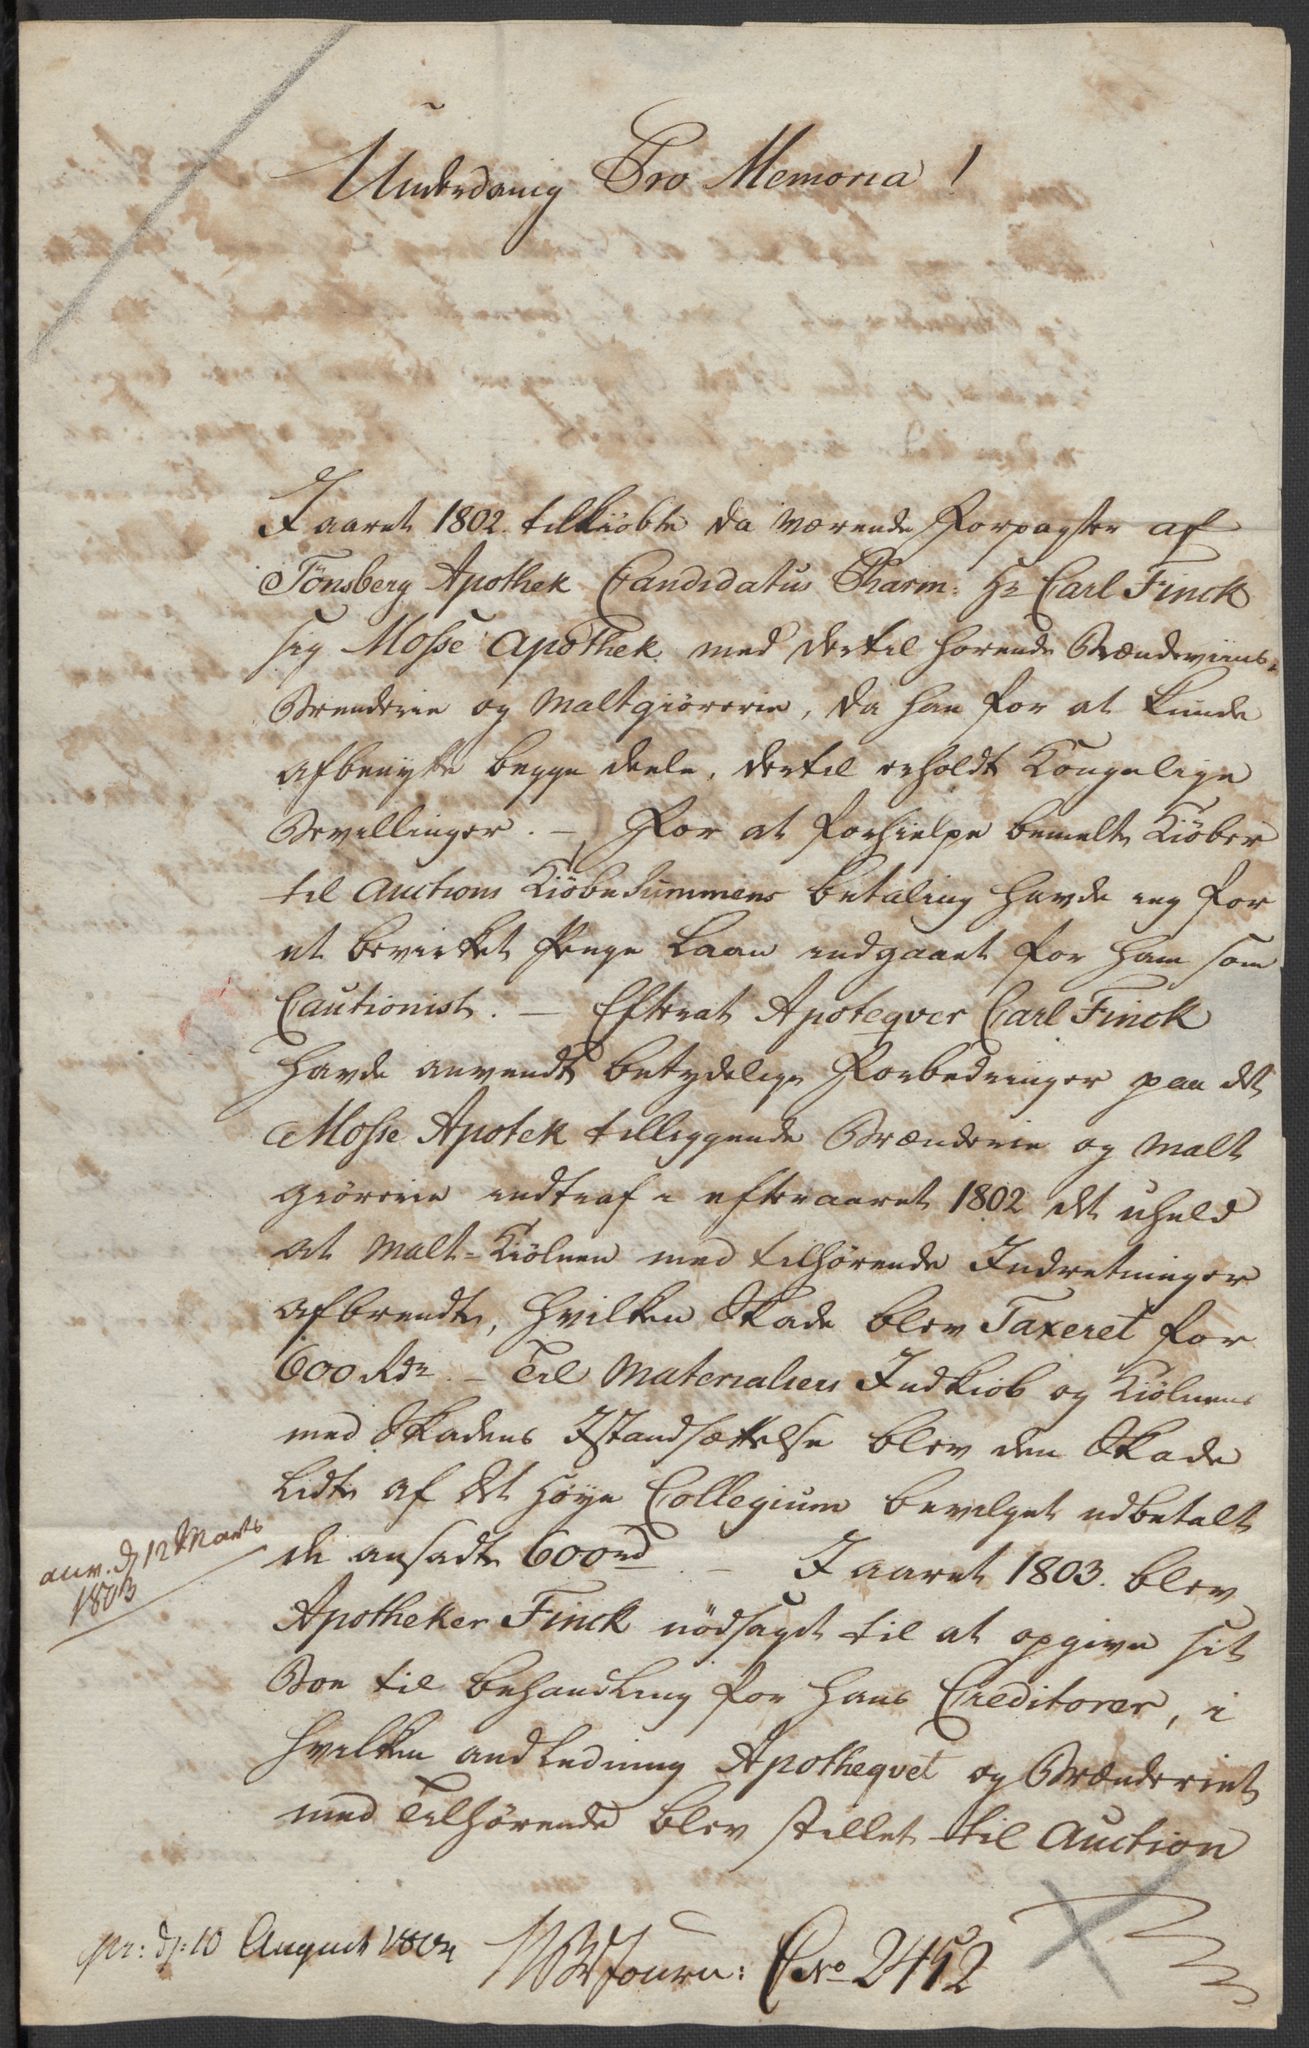 Underdanig Pro Memoria!
I aaret 1802. tilkiöbte da værende Forpagter af
Tönsberg Apothek Candidatus Pharm: Hr Carl Finck
sig Mosse Apothek med dertil hörende Brændeviins-
Brenderie og Maltgiörerie, da han for at kunde
afbenytte begge deele, dertil erholdt Kongelige
Bevillinger. – For at forhielpe bemelte Kiöber
til Auctions Kiöbesummens betaling havde ieg for
et bevirket Penge Laan indgaaet for ham som
Cautionist. – Efterat Apoteqver Carl Finck
havde anvendt betydelige Forbedringer paa det
Mosse Apotek tilliggende Brænderie og Malt
giörerie indtraf i efteraaret 1802 det uheld
at Malt-Kiölnen med tilhörende Indretninger
afbrendte, hvilken Skade blev Taxeret for
600 Rdr – Til Materialiers Indkiöb og Kiölnens
med Skadens Istandsættelse blev den Skade
Lidte af det höye Collegium bevilget udbetalt
de ansadte 600 rd – I aaret 1803. blev
anv. d 12 Marts
1803
Apotheker Finck nödsaget til at opgive sit
Boe til behandling for hans Creditorer, i
hvilken andledning Apotheqvet og Brænderiet
med Tilhörende blev stillet til Auction
pr: d: 10 August 1804
Journ: No 2452